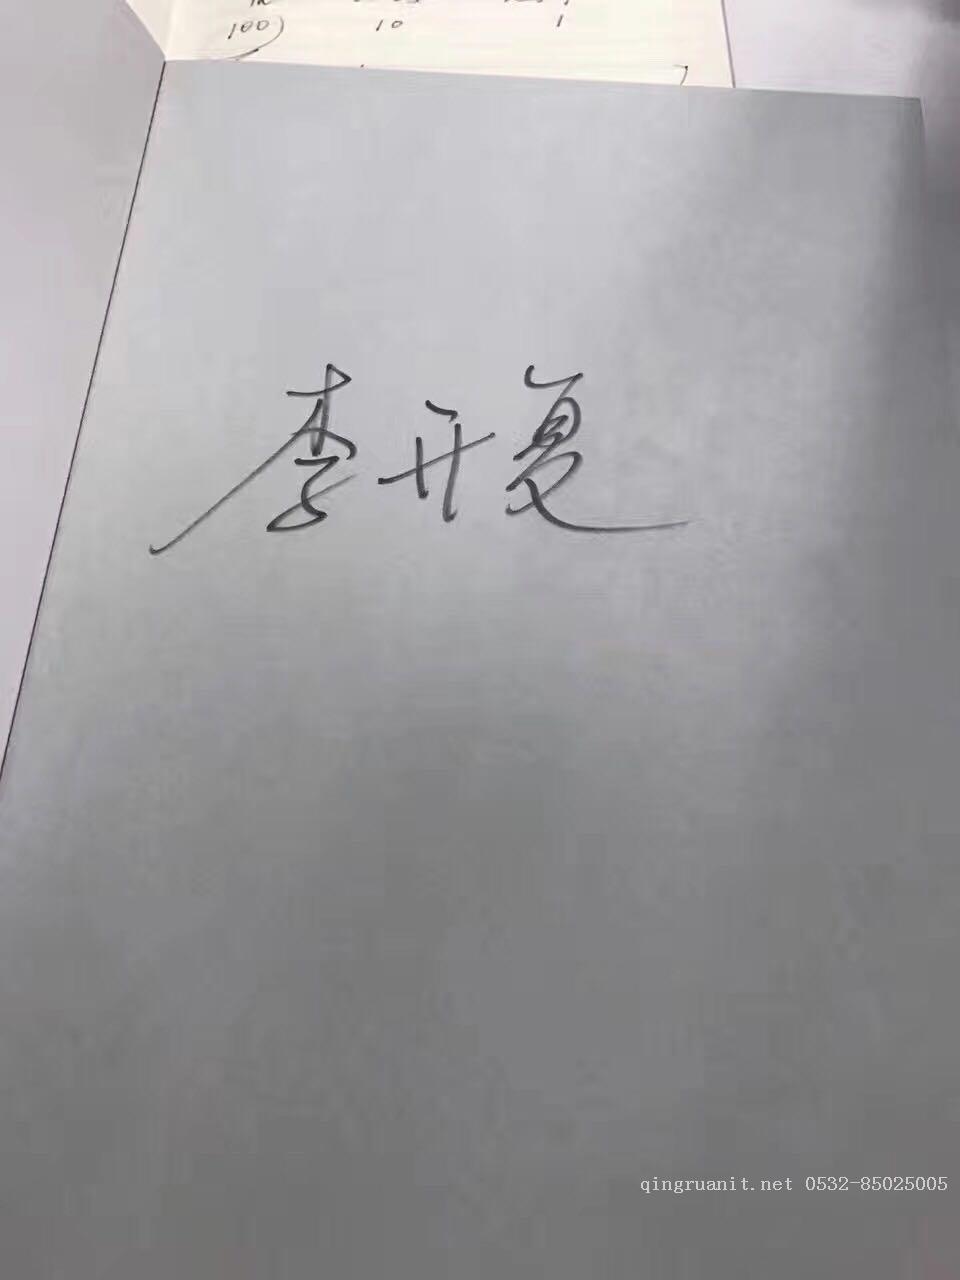 100) 10 1
李开复
qingruanit.net 0532-85025005